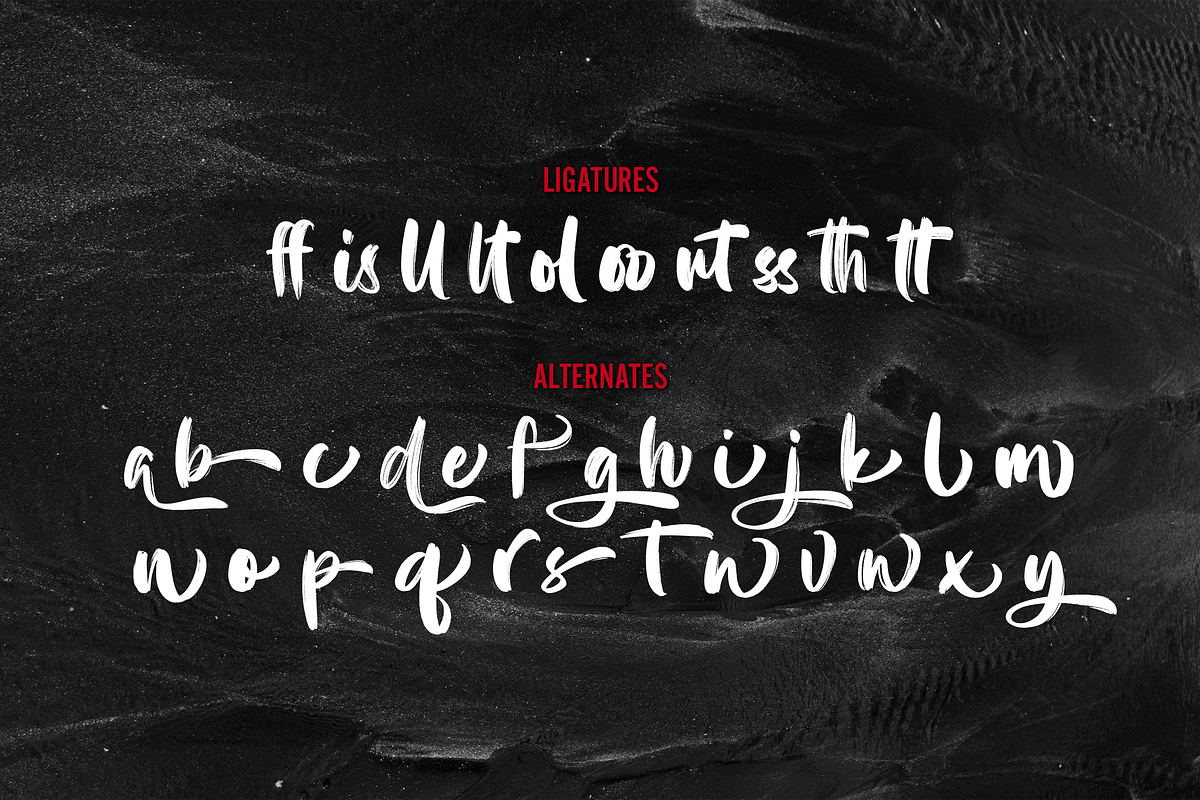 LIGATURES
ff is ll lt ol oo nt ss th tt
ALTERNATES
a b c d e f g h i j k l m
n o p q r s t u v w x y